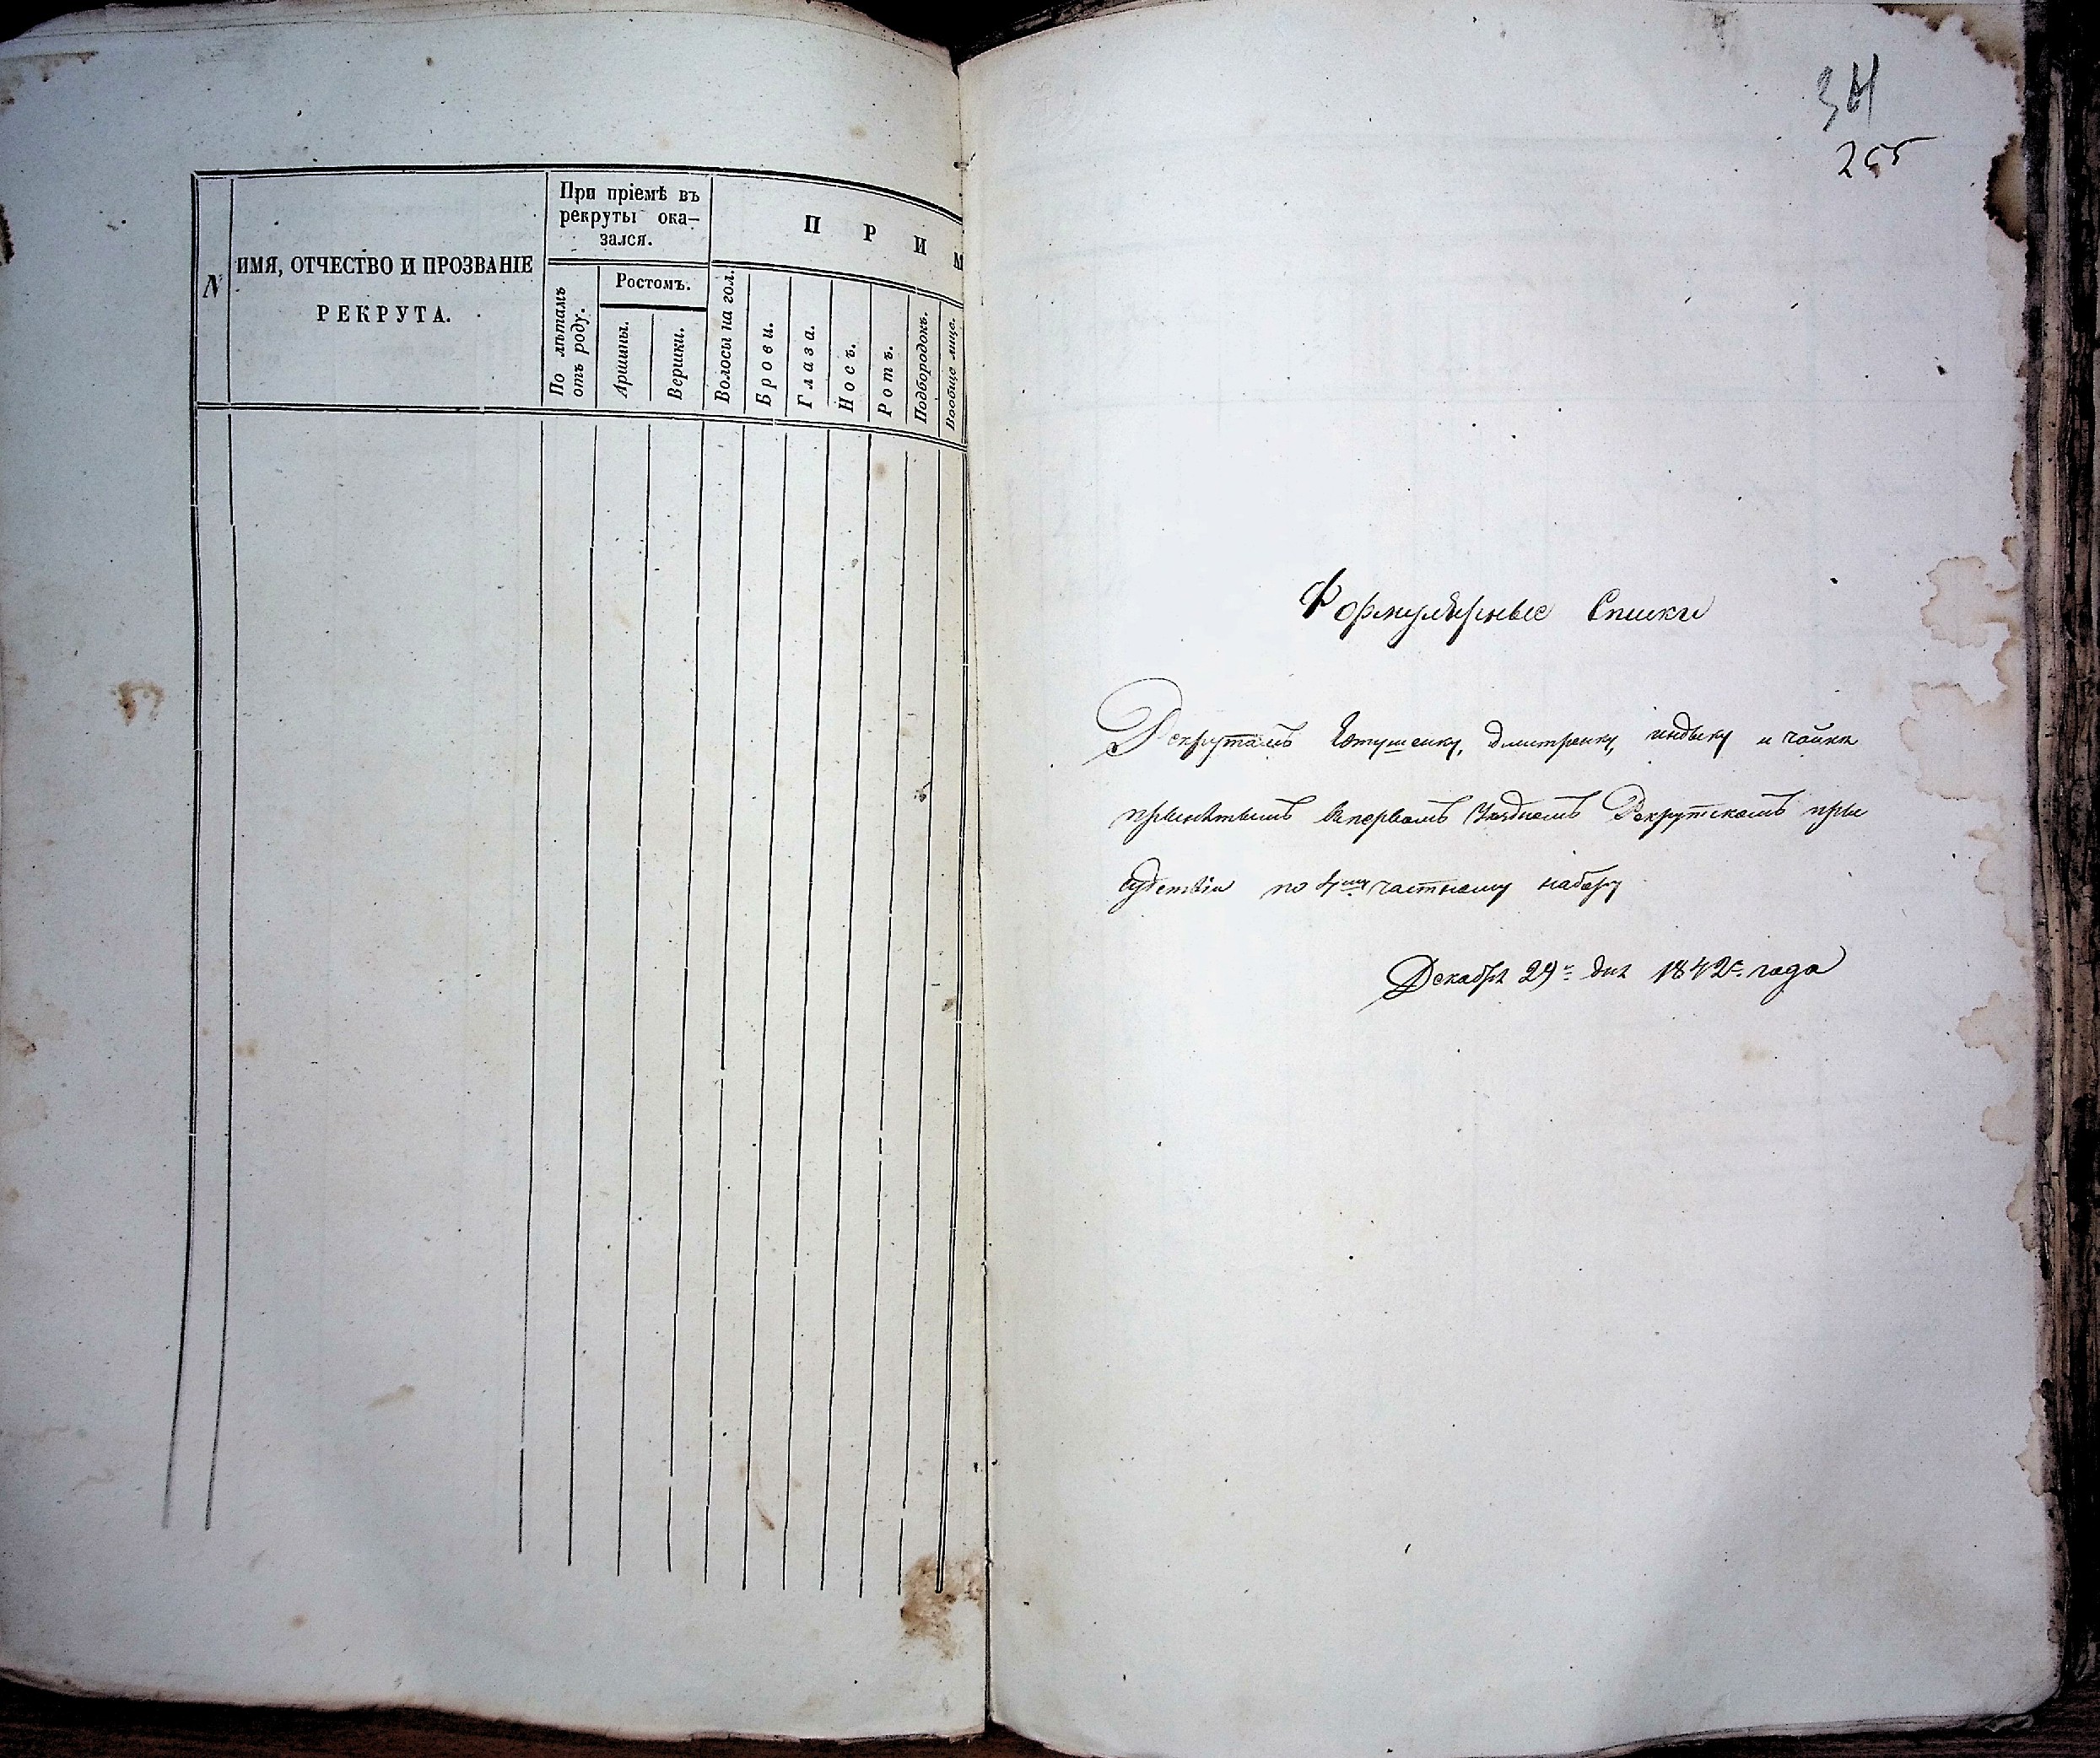 N
ИМЯ, ОТЧЕСТВО И ПРОЗВАНІЕ
РЕКРУТА.
При пріемѣ въ
рекруты ока-
зался.
По лѣтамъ
отъ роду.
Ростомъ.
Аршины.
Вершки.
П Р И М
Волосы на гол.
Брови.
Глаза.
Носъ.
Ротъ.
Подбородокъ.
Вообще лице.
34
255
Формулярные Списки
Рекрутамъ Евтушенку, Дмитренку, индыку и чайки
принятымъ вПервомъ Уѣздномъ Рекрутскомъ при
судствіи по 4му частному набору
Декабря 29го дня 1842го года